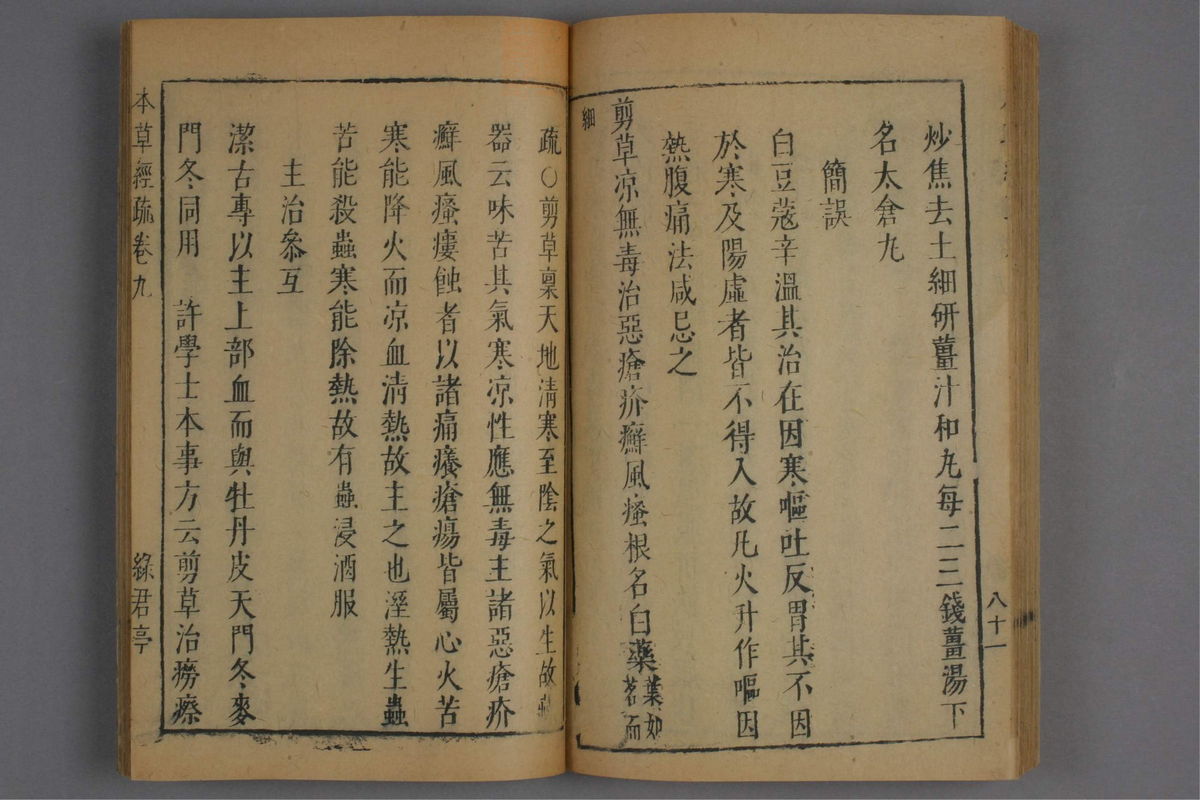 炒焦去土細研薑汁和丸每二三錢薑湯下
名太倉丸
簡誤
白豆蔻辛溫其治在因寒嘔吐反胃其不因
於寒及陽虛者皆不得入故凡火升作嘔因
熱腹痛法咸忌之
剪草凉無毒治惡瘡疥癬風瘙根名白藥葉如
茗而
細
八十一
疏○剪草稟天地淸寒至陰之氣以生故藏
器云味苦其氣寒凉性應無毒主諸惡瘡疥
癬風瘙瘻蝕者以諸痛癢瘡瘍皆屬心火苦
寒能降火而凉血淸熱故主之也溼熱生蟲
苦能殺蟲寒能除熱故有蟲浸酒服
主治叅互
潔古專以主上部血而與牡丹皮天門冬麥
門冬同用 許學士本事方云剪草治癆瘵
本草經疏卷九
綠君亭